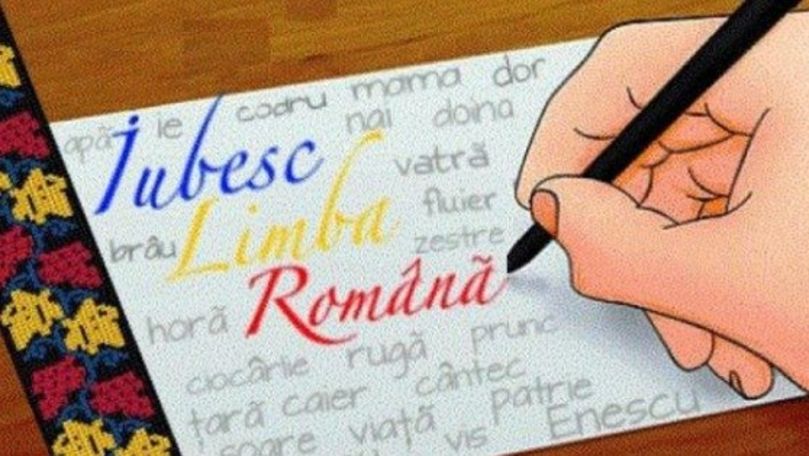 apă ie codru mama dor
nai doina
Iubesc
vatră
Limba
fluier
brâu
zestre
Română
horă
ciocârlie rugă prunc
țară caier cântec
soare viață vis patrie
Enescu